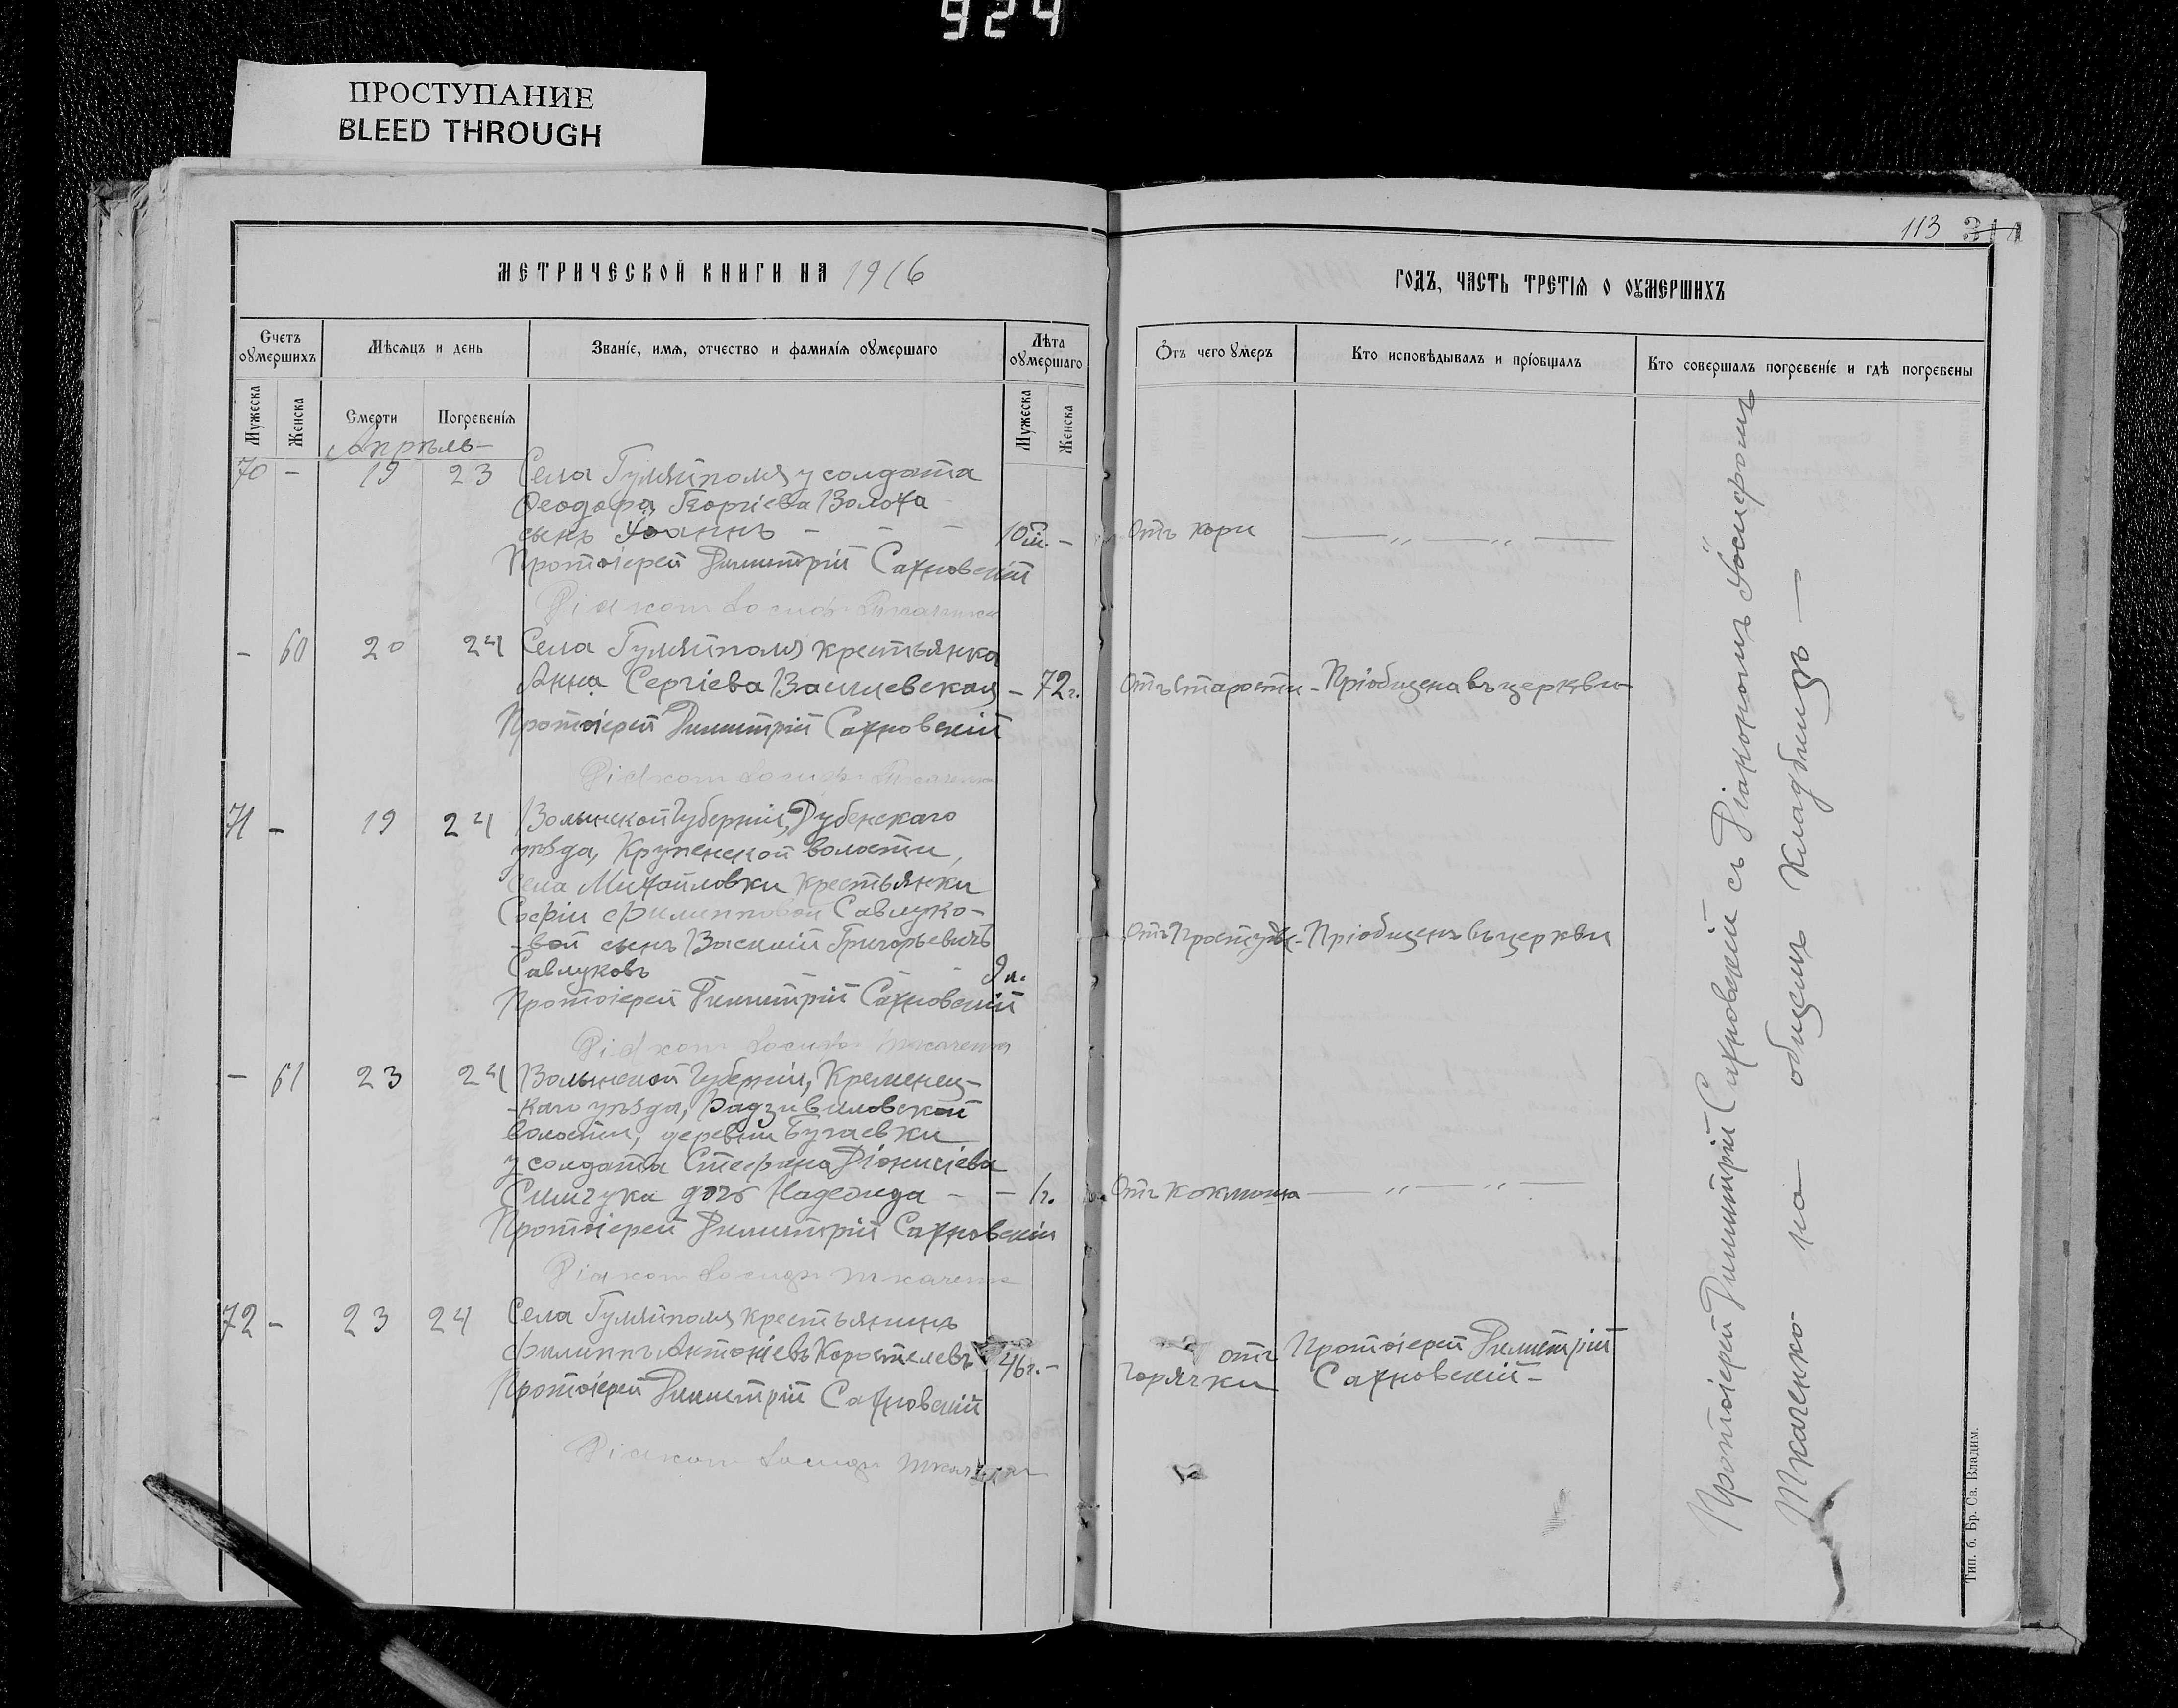 924
ПРОСТУПАНИЕ
BLEED THROUGH
113
МЕТРИЧЕСКОЙ КНИГИ НА 1916
ГОДЪ, ЧАСТЬ ТРЕТІЯ О ОУМЕРШИХЪ
Счетъ оумершихъ
Мѣсяцъ и день
Званіе, имя, отчество и фамилія оумершаго
Лѣта оумершаго
Отъ чего умеръ
Кто исповѣдывалъ и пріобщалъ
Кто совершалъ погребеніе и гдѣ погребены
Мужеска
Женска
Смерти
Погребенія
Мужеска
Женска
Апрѣль-
70 - 19 23 Села Гуляйполя у солдата
Ѳеодора Георгіева Волоха
сынъ Іоаннъ - - - 10 м. - Отъ кори — „ — „ —
Протоіерей Димитрій Сахновскій
Діаконъ Іосифъ Ткаченко
- 60 20 24 Села Гуляйполя крестьянка
Анна Сергіева Василевская - 72 г. Отъ старости - Пріобщена въ церкви -
Протоіерей Димитрій Сахновскій
Діаконъ Іосифъ Ткаченко
71 - 19 24 Волынской Губерніи, Дубенскаго
уѣзда, Крупецкой волости,
села Михайловки крестьянки
Софіи Филипповой Савлуко-
-вой сынъ Василій Григорьевичъ Отъ простуды - Пріобщенъ въ церкви
Савлуковъ - - 9 л.
Протоіерей Димитрій Сахновскій
Діаконъ Іосифъ Ткаченко
- 61 23 24 Волынской Губерніи, Кременец-
-каго уѣзда, Радзивиловской
волости, деревни Бугаевки
у солдата Стефана Діонисіева
Симчука дочь Надежда - - 1 г. Отъ коклюша — „ — „ —
Протоіерей Димитрій Сахновскій
Діаконъ Іосифъ Ткаченко
72 - 23 24 Села Гуляйполя крестьянинъ
Филиппъ Антоніевъ Коростелевъ 46 г. - отъ Протоіерей Димитрій
горячки Сахновскій -
Протоіерей Димитрій Сахновскій
Діаконъ Іосифъ Ткаченко
Протоіерей Димитрій Сахновскій съ Діакономъ Іосифомъ
Ткаченко на общемъ кладбищѣ —
Тип. б. Бр. Св. Владим.